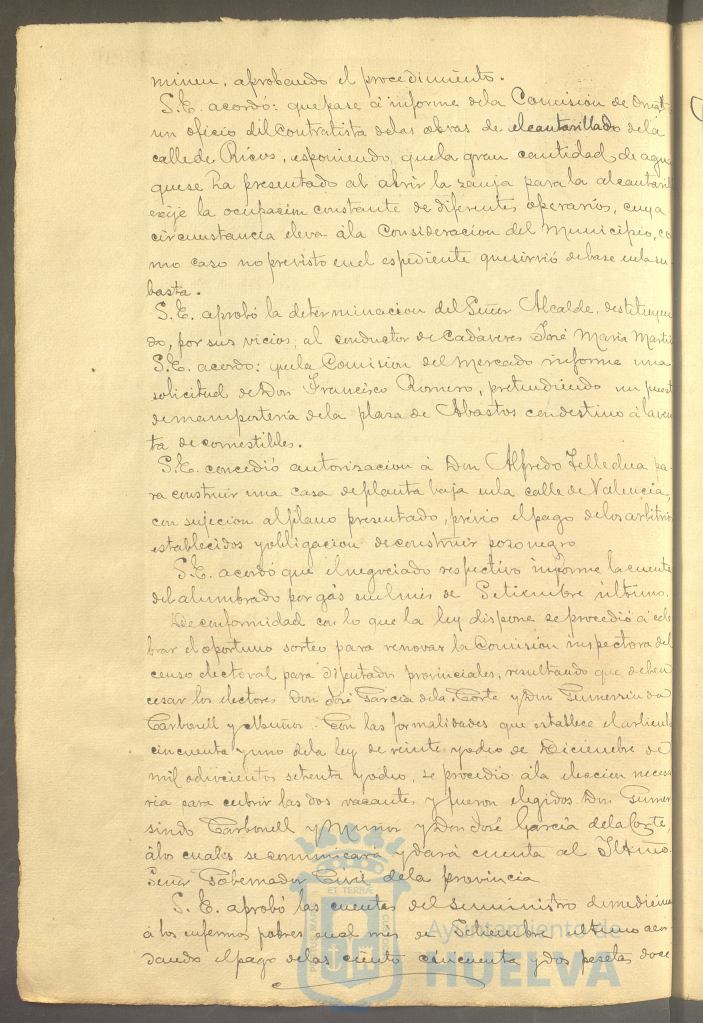 minen, aprobando el procedimiento.
S.E. acordo: que pase á informe de la Comision de Ornato
un oficio del contratista de las obras de alcantarillado de la
calle de Ricos, esponiendo, que la gran cantidad de agua
que se ha presentado al abrir la zanja para la alcantarill
exije la ocupacion constante de diferentes operarios, cuya
circunstancia eleva á la Consideracion del Municipio, co
mo caso no previsto en el espediente que sirvió de base en la su-
basta.
S.E. aprobó la determinacion del Señor Alcalde, destituyen
do, por sus vicios, al conductor de Cadáveres José Maria Marti
S.E. acordo: que la Comision del Mercado informe una
solicitud de Don Francisco Romero, pretendiendo un puest
de mamposteria de la plaza de Abastos con destino á la ven
ta de comestibles.
S.E. concedió autorizacion á Don Alfredo pa
ra construir una casa de planta baja en la calle de Valencia,
con sujecion al plano presentado, prévio el pago de los arbitrios
establecidos y obligacion de construir pozo negro
S.E. acordó que el negociado respectivo informe la cuenta
del alumbrado por gás en el mes de Setiembre último.
De conformidad con lo que la ley dispone se procedió á cele
brar el oportuno sorteo para renovar la Comision inspectora del
censo electoral para Diputados provinciales, resultando que deben
cesar los electores Don José Garcia de la Corte y Don Gumersindo
Carbonell y Muñoz. Con las formalidades que establece el articulo
cincuenta y uno de la ley de veinte y ocho de Diciembre de
mil ochocientos setenta y ocho, se procedió á la eleccion necesa
ria para cubrir las dos vacantes y fueron elegidos Don Gumer
sindo Carbonell y Muñoz y Don José Garcia de la Corte,
á los cuales se comunicará y dará cuenta al Iltmo.
Señor Gobernador Civil de la provincia
S.E. aprobó las cuentas del suministro de medicina
á los enfermos pobres en el mes de Setiembre último acor
dando el pago de las ciento cincuenta y dos pesetas doce
Ayuntamiento de
HUELVA